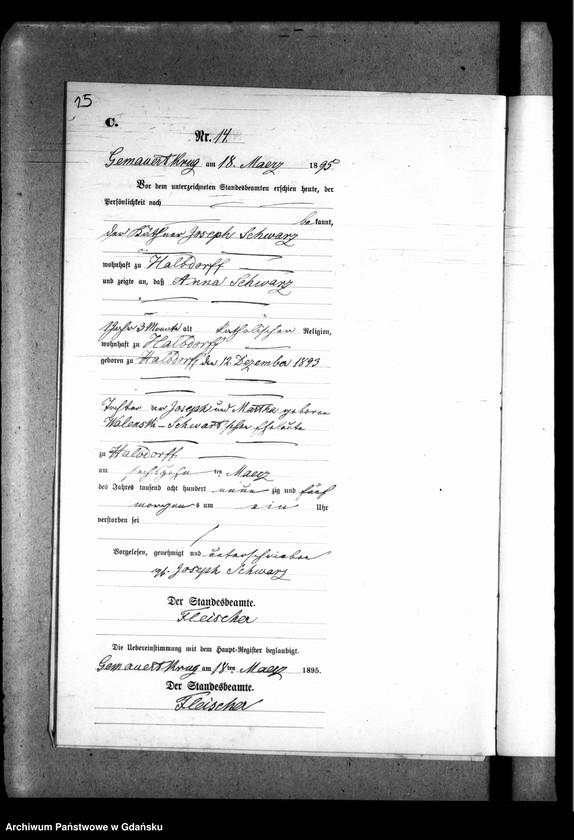 25
C.
Nr. 14.
Gemauert Krug am 18. Maerz 1895
Vor dem unterzeichneten Standesbeamten erschien heute, der
Persönlichkeit nach
bekannt,
der Käthner Joseph Schwarz
wohnhaft zu Halbdorff
und zeigte an, daß Anna Schwarz
1 Jahr 3 Monate alt katholischer Religion,
wohnhaft zu Halbdorff
geboren zu Halbdorff den 12. Dezember 1893
Tochter der Joseph und Martha geborene
Walenski-Schwarz'schen Eheleute
zu Halbdorff
am sechszehnten Maerz
des Jahres tausend acht hundert neunzig und fünf
morgens um ein Uhr
verstorben sei
Vorgelesen, genehmigt und unterschrieben
gz. Joseph Schwarz
Der Standesbeamte.
Fleischer
Die Uebereinstimmung mit dem Haupt-Register beglaubigt.
Gemauert Krug am 18ten Maerz 1895.
Der Standesbeamte.
Fleischer
Archiwum Państwowe w Gdańsku